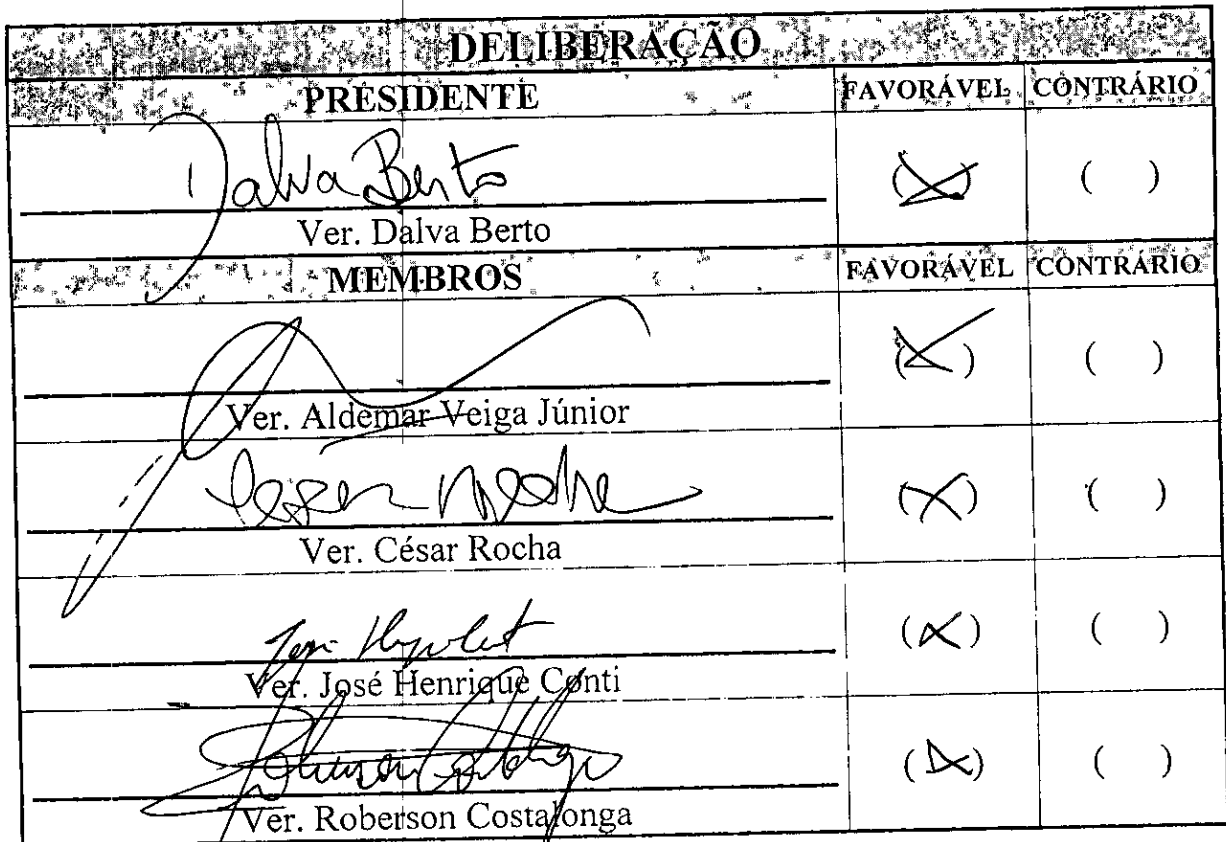 DELIBERAÇÃO
PRESIDENTE FAVORÁVEL CONTRÁRIO
Dalva Berto (X) ( )
Ver. Dalva Berto
MEMBROS FAVORÁVEL CONTRÁRIO
(X) ( )
Ver. Aldemar Veiga Júnior
(X) ( )
Ver. César Rocha
(X) ( )
Ver. José Henrique Conti
(X) ( )
Ver. Roberson Costalonga